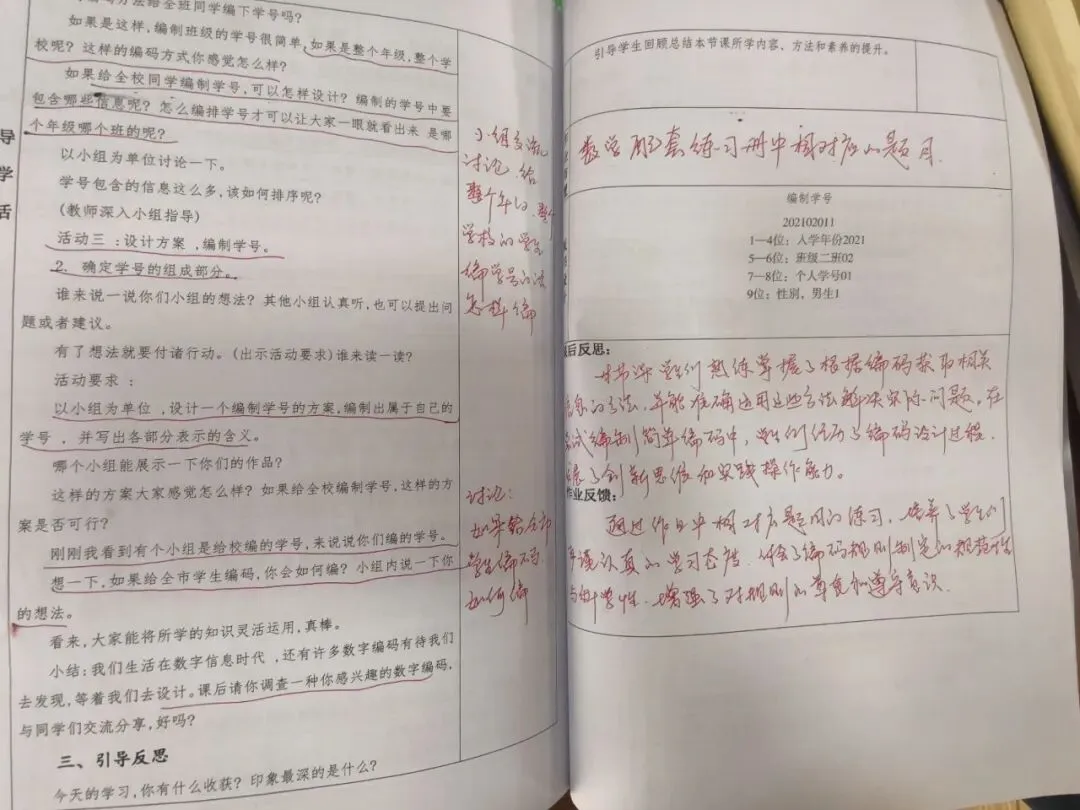 方法给全班同学编下学号吗?
如果是这样,编制班级的学号很简单,如果是整个年级,整个学
校呢? 这样的编码方式你感觉怎么样?
如果给全校同学编制学号,可以怎样设计? 编制的学号中要
包含哪些信息呢? 怎么编排学号才可以让大家一眼就看出来 是哪
个年级哪个班的呢?
以小组为单位讨论一下。
学号包含的信息这么多,该如何排序呢?
(教师深入小组指导)
活动三 :设计方案 ,编制学号。
2. 确定学号的组成部分。
谁来说一说你们小组的想法? 其他小组认真听,也可以提出问
题或者建议。
有了想法就要付诸行动。(出示活动要求)谁来读一读?
活动要求 :
以小组为单位 ,设计一个编制学号的方案,编制出属于自己的
学号 ,并写出各部分表示的含义。
哪个小组能展示一下你们的作品?
这样的方案大家感觉怎么样? 如果给全校编制学号,这样的方
案是否可行?
刚刚我看到有个小组是给校编的学号,来说说你们编的学号。
想一下,如果给全市学生编码,你会如何编? 小组内说一下你
的想法。
看来,大家能将所学的知识灵活运用,真棒。
小结:我们生活在数字信息时代 ,还有许多数字编码有待我们
去发现,等着我们去设计。课后请你调查一种你感兴趣的数字编码,
与同学们交流分享,好吗?
三、引导反思
今天的学习,你有什么收获? 印象最深的是什么?
导
学
活
小组交流
讨论,给
整个年级、整个
学校的学生
编学号的话
怎样编
讨论:
如果给全市
学生编码,
如何编
引导学生回顾总结本节课所学内容、方法和素养的提升。
数学配套练习册中相对应的题目.
编制学号
202102011
1—4位: 入学年份2021
5—6位: 班级二班02
7—8位: 个人学号01
9位: 性别, 男生1
后反思:
本节课学生们熟练掌握了根据编码获取相关
信息的方法,并能准确运用这些方法解决实际问题,在
尝试编制简单编码中,学生们经历了编码设计过程.
了创新思维和实践操作能力。
作业反馈:
通过作业中相对应题目的练习,培养了学生们
严谨认真的学习态度.体会了编码规则制定的规范性
与科学性.增强了对规则的尊重和遵守意识.